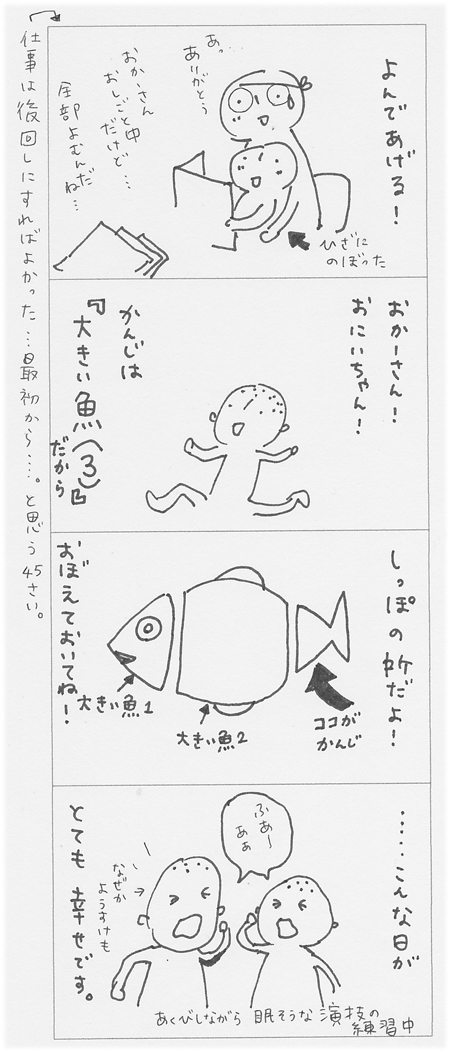 よんであげる!
あっ…
ありがとう
おかーさん
おしごと中
だけど…
全部よむんだ
ね…
ひざに
のぼった
おかーさん!
おにいちゃん!
かんじは
『大きい魚(3)』
だから
しっぽの所だよ!
ココが
かんじ
大きい魚2
大きい魚1
おぼえておいてね!
……こんな日が
ふあー
あぁ
なぜか
ようすけも
とても幸せです。
あくびしながら 眠そうな演技の
練習中
仕事は後回しにすればよかった…最初から…。と思う45さい。